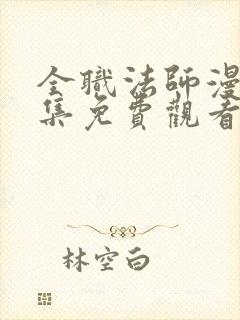 全職法師漫
集免費觀看
林空白